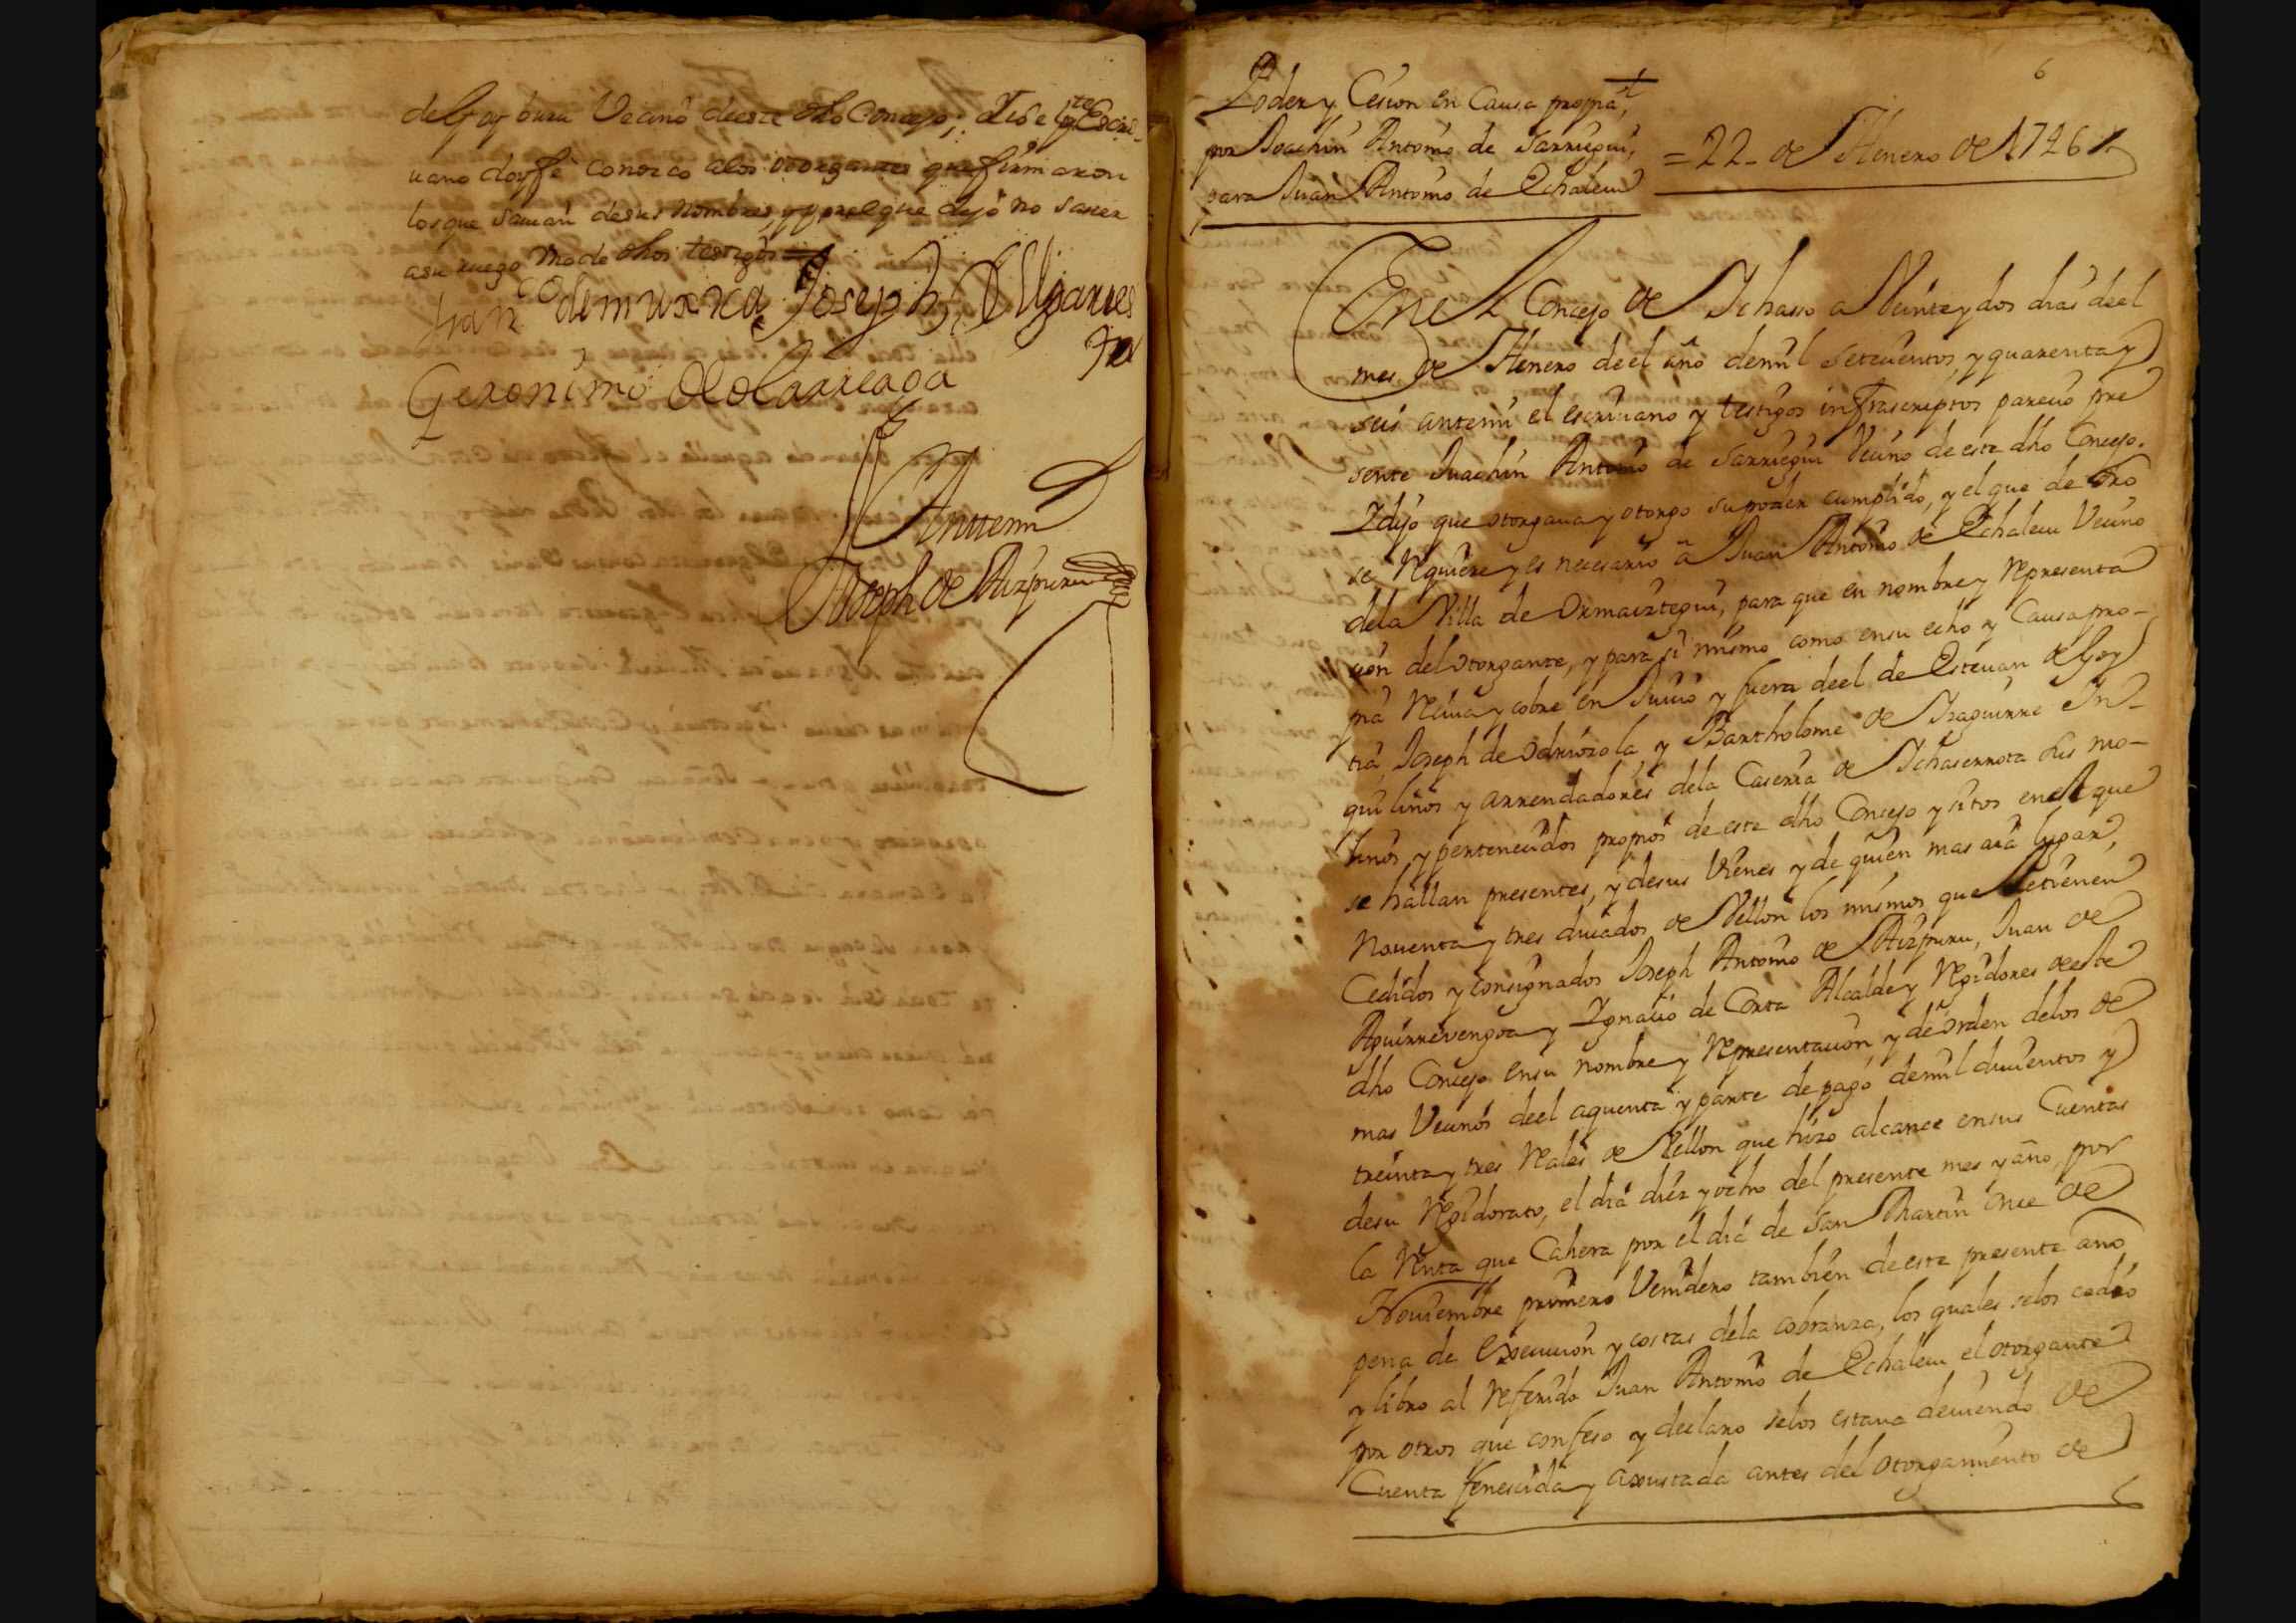 del Goyburu Vecino deeste dho Concejo; Eyoel pte Escri-
uano doyfe conozco alos otorgantes que firmaron
losque sauian desus nombres, y por el que dijo no sauer
asu ruego uno de dhos testigos =
Fran.co de murxca Joseph de Elgarrested
Geronimo de olarreaga
Anttemi
Joseph de Aizpuru
6
Poder y Cesion en Causa propia,
por Joachin Antonio de Sarriegui,
para Juan Antonio de Echaleau
= 22 - de Henero de 1746
En el Concejo de Ichasso a Veinte y dos dias deel
mes de Henero deel año demil setecientos, y quarenta y
seis antemi el escriuano y testigos infraescriptos parecio pre
sente Juachin Antonio de Sarriegui Vecino de este dho Concejo.
Y dijo que otorgaua y otorgo su poder cumplido, y el que de dro
se Requiere y es necesario â Juan Antonio de Echaleau Vecino
dela Villa de Ormaiztegui, para que en nombre y Representa
cion del otorgante, y para si mismo como ensu echo y Causa pro-
pia Reciua y cobre en Juicio y fuera deel de Esteuan de Goy
tia, Joseph de Odriozola, y Bartholome de Izaguirre In-
quilinos y arrendadores dela Caseria de Ichaserrota sus mo-
linos y pertenecidos propios de este dho Concejo y sitos en el que
se hallan presentes, y desus Vienes y de quien mas aia lugar,
Nouenta y tres ducados de Vellon los mismos que le tienen
Cedidos y consignados Joseph Antonio de Aizpuru, Juan de
Aguirrevengoa y Ygnacio de Corta Alcalde y Regidores deeste
dho Concejo ensu nombre y Representacion y de orden delos de
mas Vecinos deel aquenta y parte de pago demil ducientos y
treinta y tres Reales de Vellon que hizo alcance ensus Cuentas
desu Regidorato, el dia diez y ocho del presente mes y año, por
la Renta que Cahera por el dia de San Martin once de
Nouiembre primero Venidero tambien deeste presente año
pena de execucion y costas dela cobranza, los quales selos cedio
y libro al Referido Juan Antonio de Echaleau el otorgante
por otros que confeso y declaro selos estaua deuiendo de
Cuenta fenescida y axustada antes del otorgamiento de